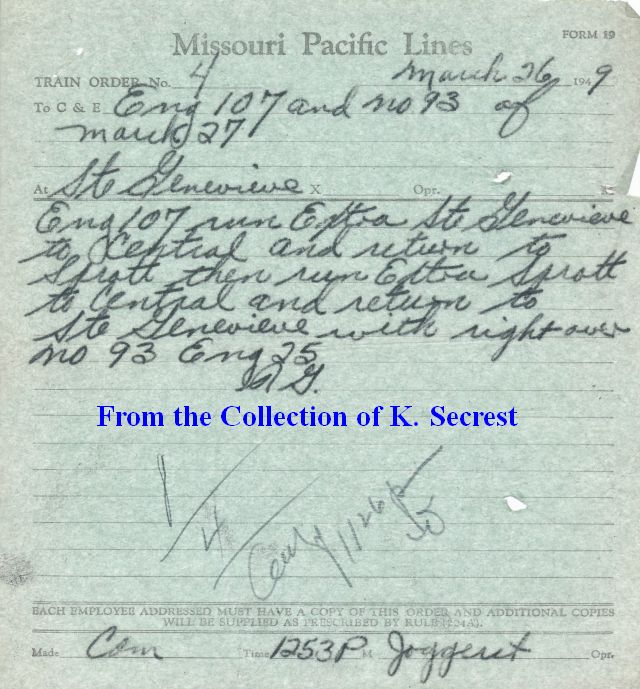 FORM 19
Missouri Pacific Lines
TRAIN ORDER No. 4 March 26 1949
To C & E Eng 107 and No 93 of
March 27
At Ste Genevieve X Opr. M.
Eng 107 run Extra Ste Genevieve
to Central and return to
Sprott then run Extra Sprott
to Central and return to
Ste Genevieve with right over
No 93 Eng 25
From the Collection of K. Secrest
1
4
1126 P
EACH EMPLOYEE ADDRESSED MUST HAVE A COPY OF THIS ORDER AND ADDITIONAL COPIES
WILL BE SUPPLIED AS PRESCRIBED BY RULE (224A).
Made Com Time 1253P M Joggerst Opr.